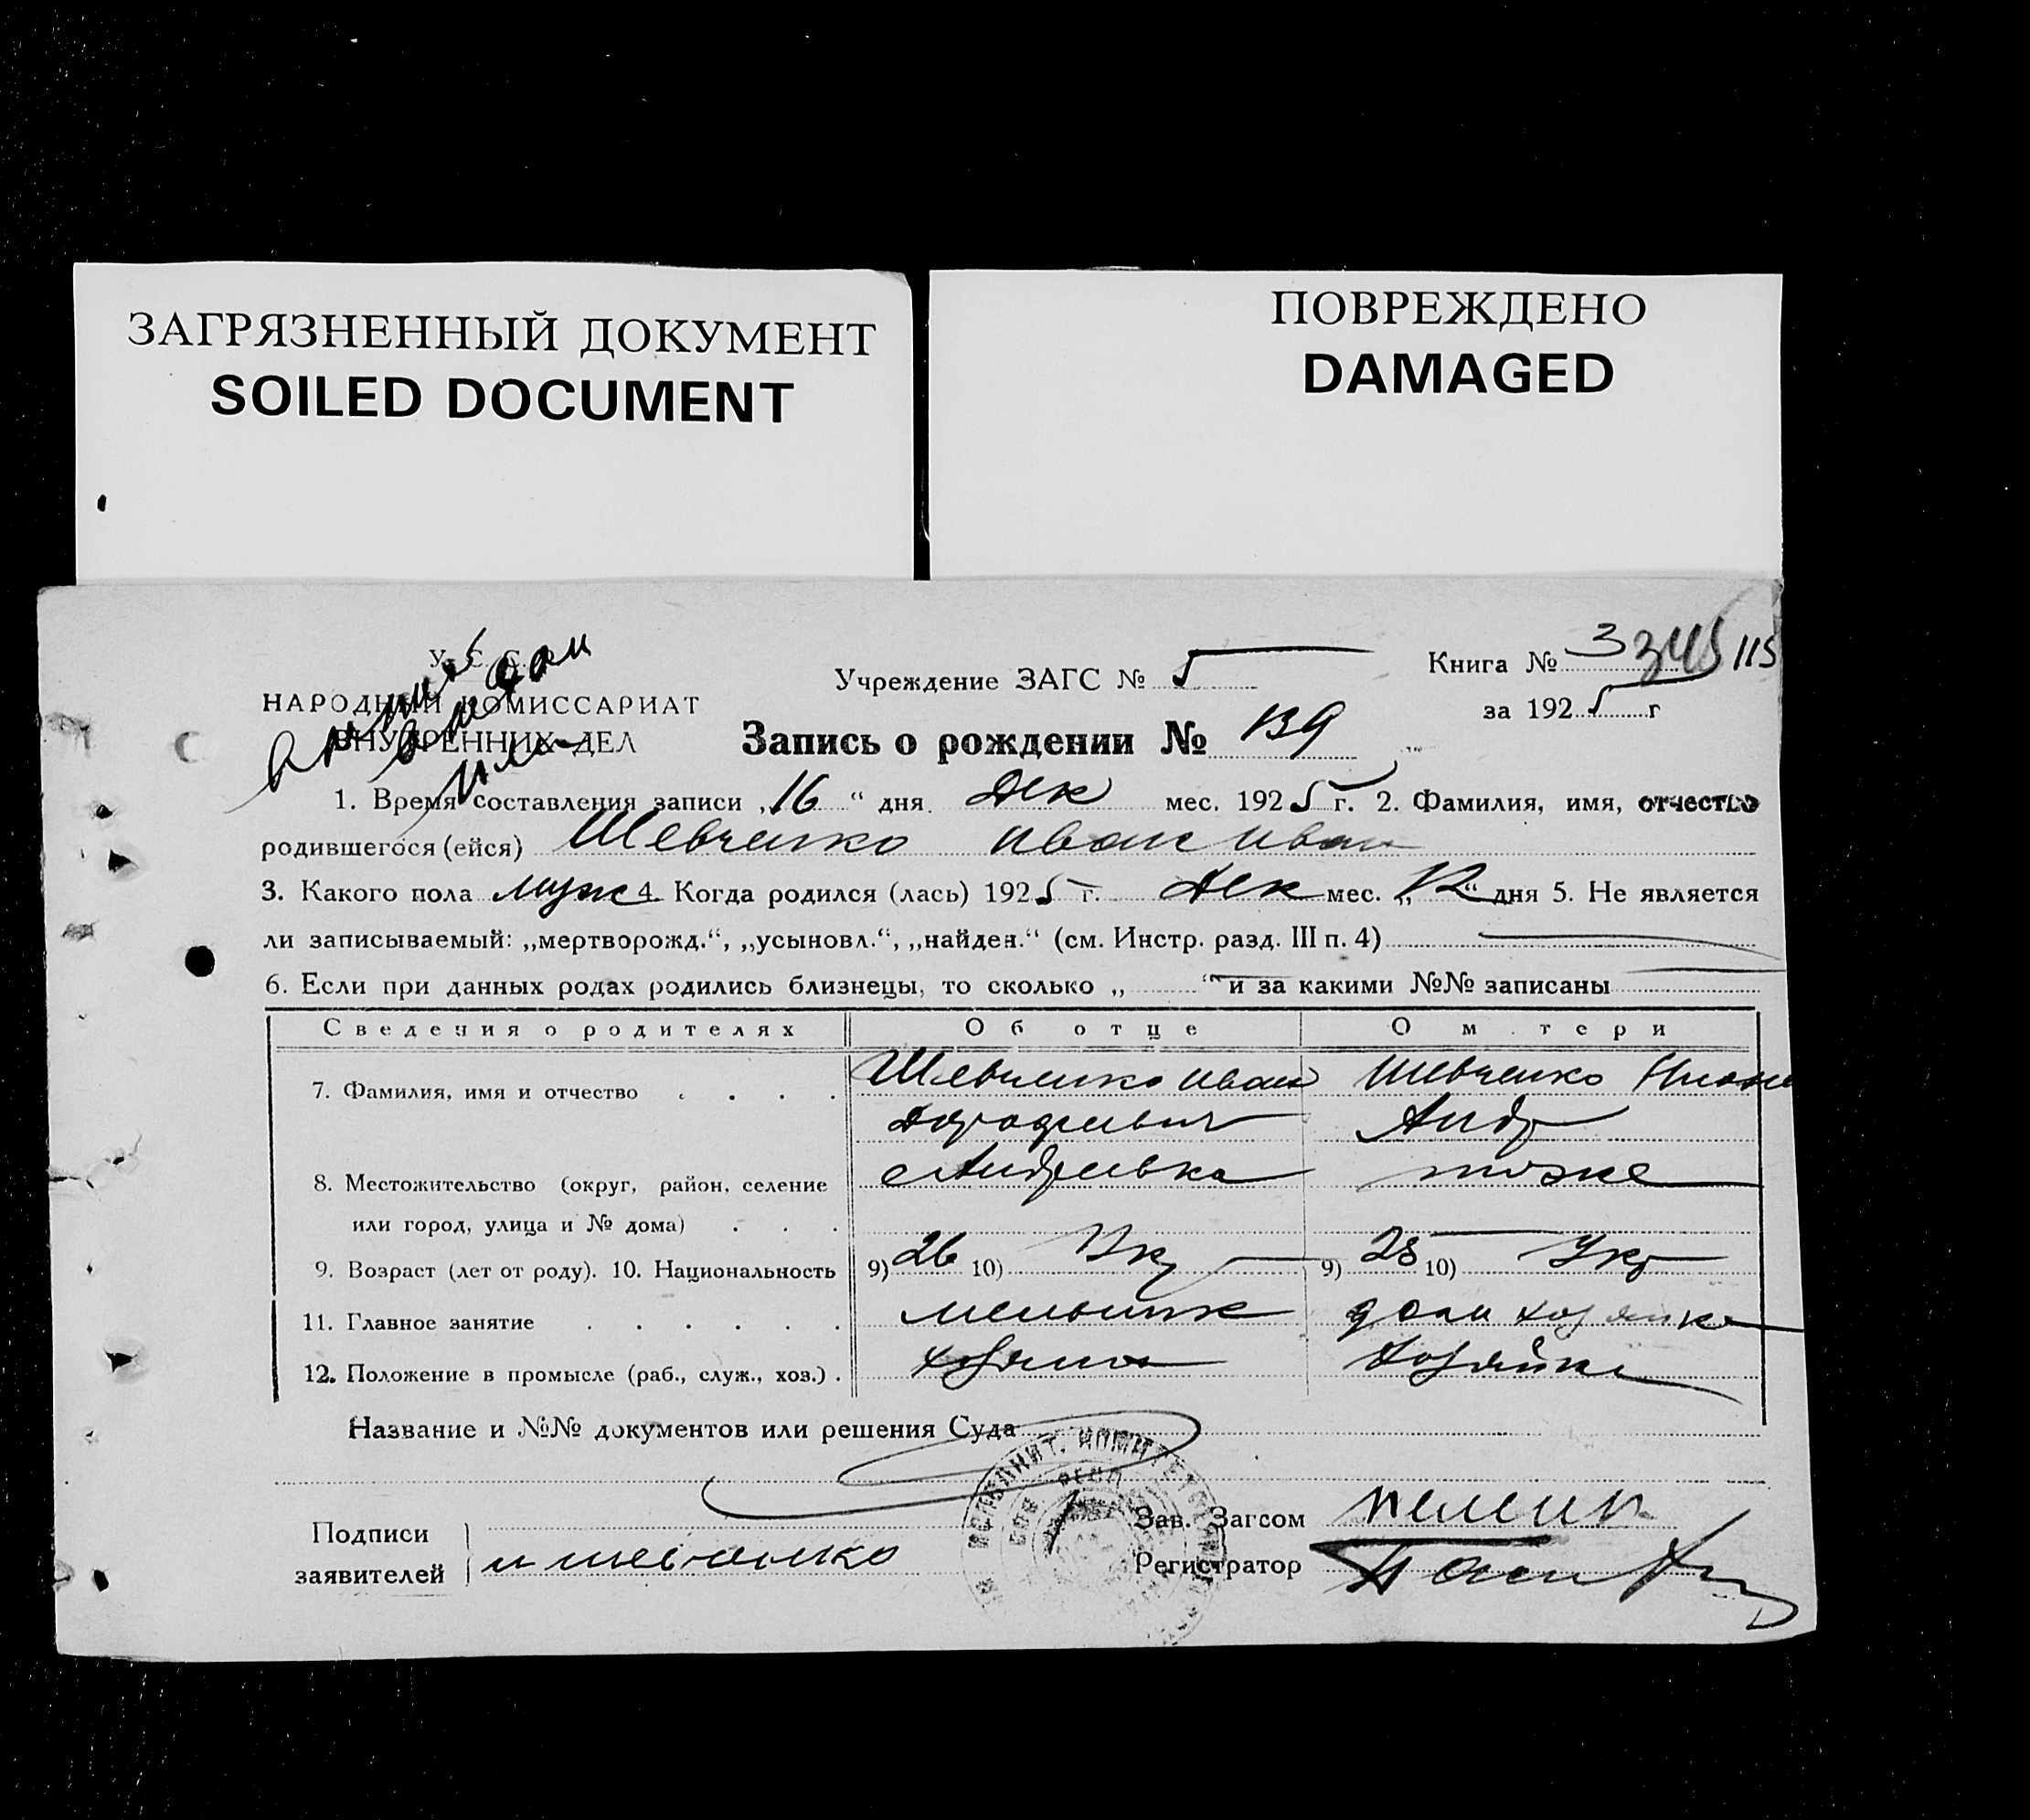 ЗАГРЯЗНЕННЫЙ ДОКУМЕНТ
SOILED DOCUMENT
ПОВРЕЖДЕНО
DAMAGED
У. С. С.
НАРОДНЫЙ КОМИССАРИАТ
ВНУТРЕННИХ ДЕЛ
Учреждение ЗАГС № 5
Книга № 3 115
за 1925 г
Запись о рождении № 139
1. Время составления записи „16“ дня Дек мес. 1925 г. 2. Фамилия, имя, отчество
родившегося (ейся) Шевченко Иван Иван
3. Какого пола муж 4. Когда родился (лась) 1925 г. Дек мес. „12“ дня 5. Не является
ли записываемый: „мертворожд.“, „усыновл.“, „найден.“ (см. Инстр. разд. III п. 4)
6. Если при данных родах родились близнецы, то сколько „ “ и за какими №№ записаны
Сведения о родителях Об отце О м тери
7. Фамилия, имя и отчество . . . . Шевченко Иван Шевченко
Дорофеевич Андр
8. Местожительство (округ, район, селение с Андреевка тоже
или город, улица и № дома) . . .
9. Возраст (лет от роду). 10. Национальность 9) 26 10) Укр 9) 25 10) Укр
11. Главное занятие . . . . . . мельник дом хозяйка
12. Положение в промысле (раб., служ., хоз.) . хозяин хозяйка
Название и №№ документов или решения Суда
Подписи
заявителей и шевченко
ИСПОЛНИТ. КОМИТЕТ
Зав. Загсом
Регистратор